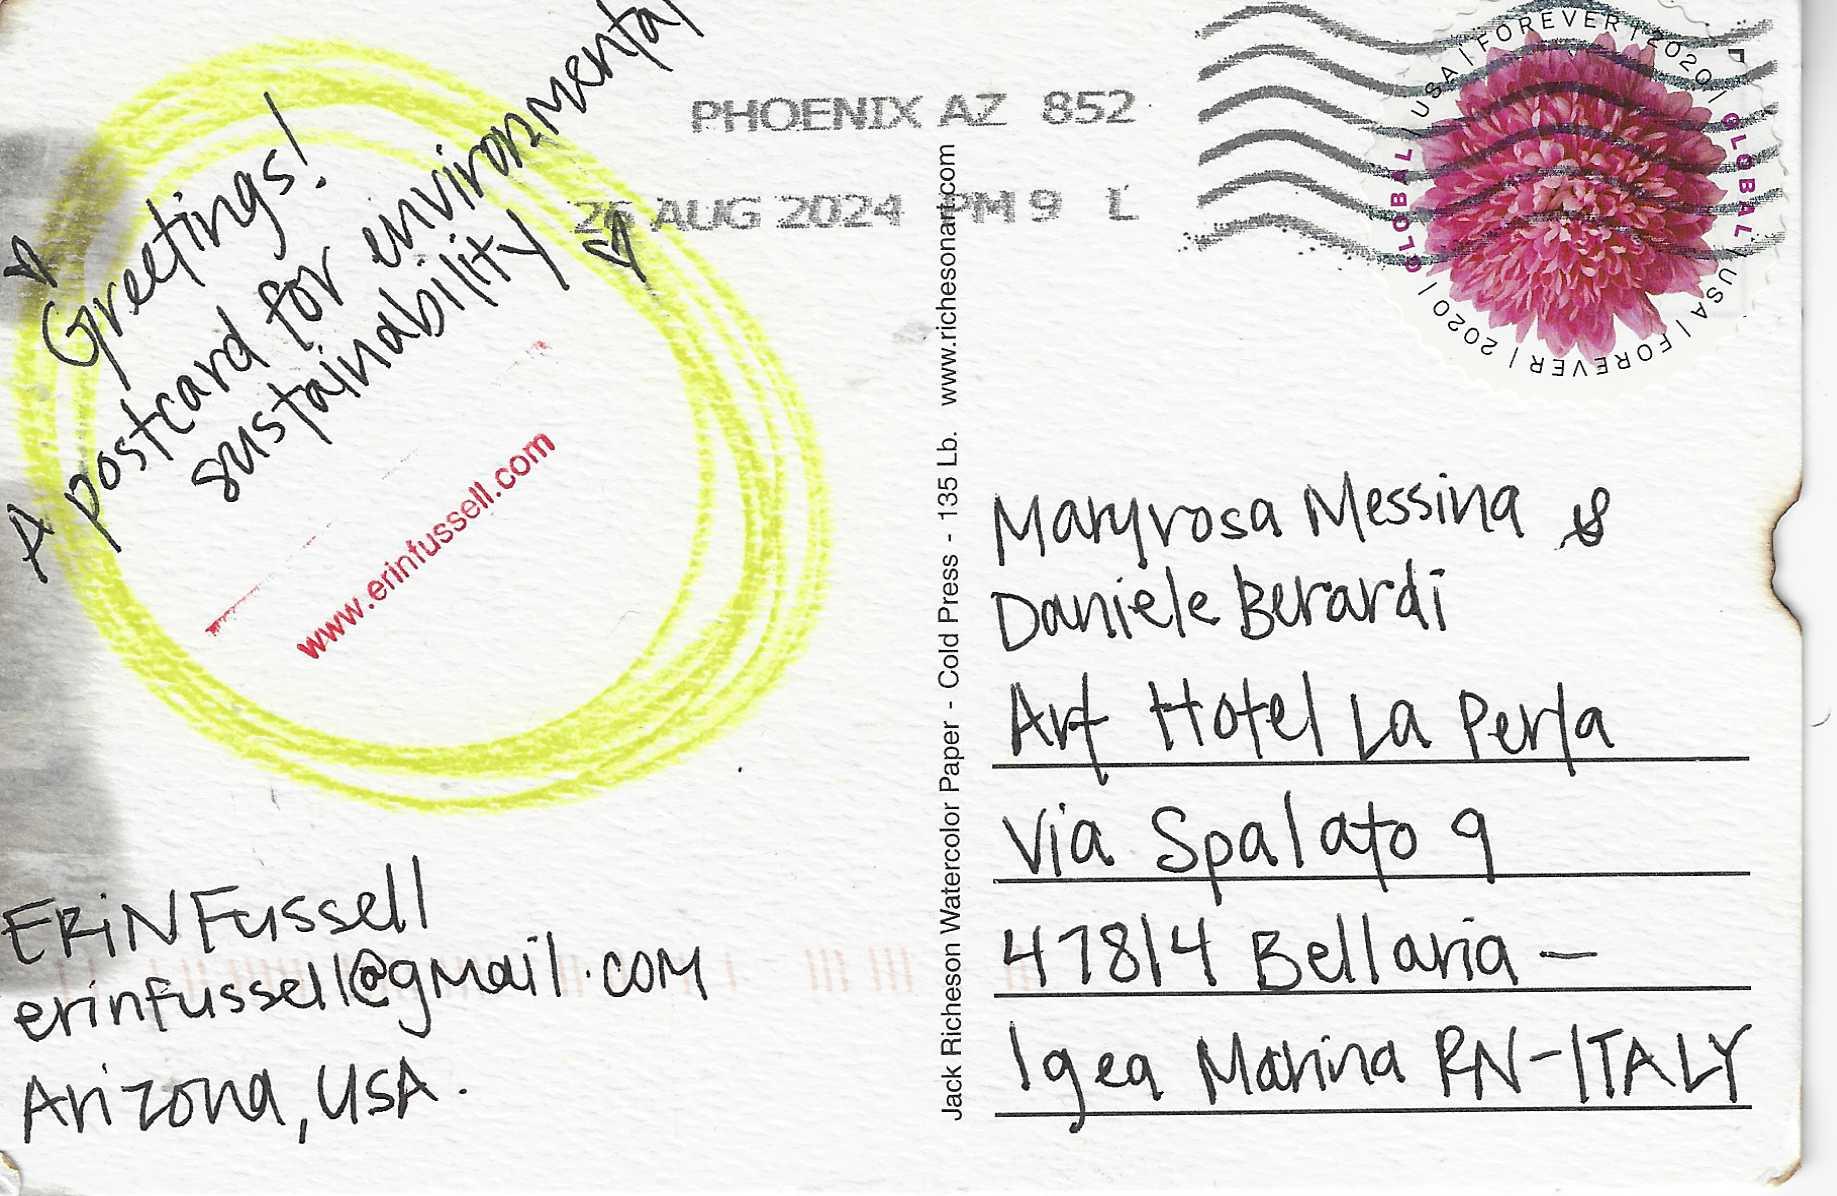 Greetings!
A postcard for environmental
sustainability
www.erinfussell.com
ERIN Fussell
erinfussell@gmail.com
Arizona, USA.
PHOENIX AZ 852
26 AUG 2024 PM 9 L
Jack Richeson Watercolor Paper - Cold Press - 135 Lb. www.richesonart.com
GLOBAL | USA | FOREVER | 2020 | GLOBAL | USA | FOREVER | 2020 |
Maryrosa Messina &
Daniele Berardi
Art Hotel La Perla
Via Spalato 9
47814 Bellaria -
Igea Marina RN-ITALY